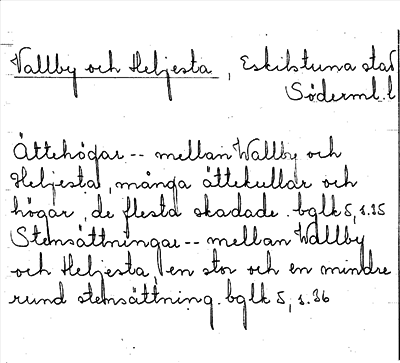 Vallby och Heljesta, Eskilstuna stad
Söderml. l
Ättehögar -- mellan Wallby och
Heljesta, många ättekullar och
högar, de flesta skadade. bglk 5, s. 25
Stensättningar -- mellan Wallby
och Heljesta, en stor och en mindre
rund stensättning. bglk 5, s. 36